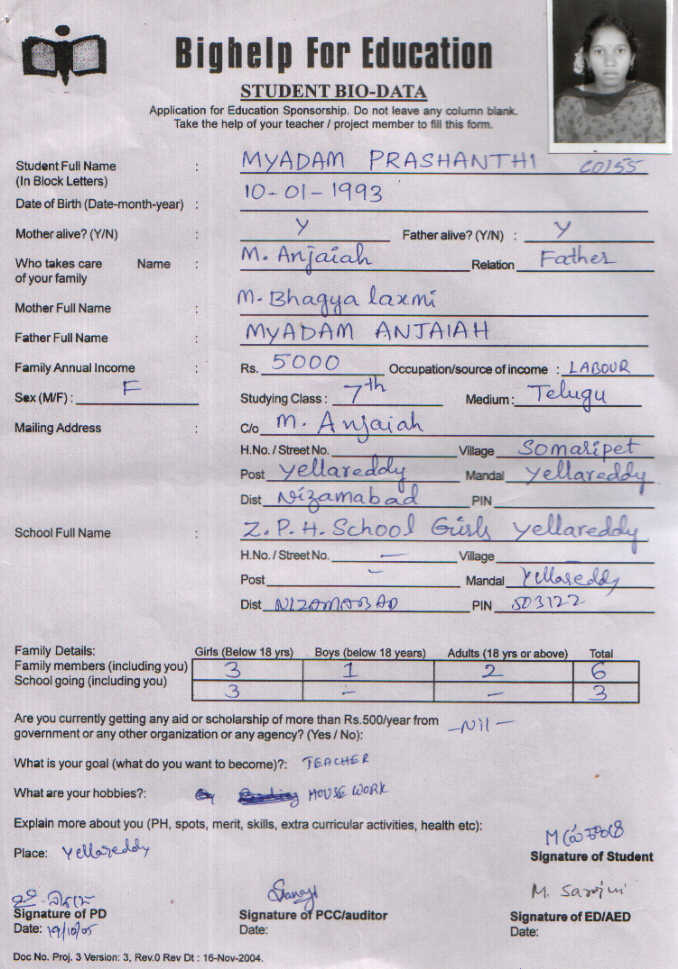 Bighelp For Education
STUDENT BIO-DATA
Application for Education Sponsorship. Do not leave any column blank.
Take the help of your teacher / project member to fill this form.
Student Full Name : MYADAM PRASHANTHI C0155
(In Block Letters)
Date of Birth (Date-month-year) : 10-01-1993
Mother alive? (Y/N) : Y Father alive? (Y/N) : Y
Who takes care Name : M. Anjaiah Relation Father
of your family
Mother Full Name : M. Bhagya laxmi
Father Full Name : MYADAM ANJAIAH
Family Annual Income : Rs. 5000 Occupation/source of income : LABOUR
Sex (M/F) : F Studying Class : 7th Medium : Telugu
Mailing Address : C/o M. Anjaiah
H.No. / Street No. Village Somaripet
Post Yellareddy Mandal Yellareddy
Dist Nizamabad PIN
School Full Name : Z.P.H. School Girls Yellareddy
H.No. / Street No. — Village —
Post — Mandal Yellareddy
Dist NIZAMABAD PIN 503122
Family Details: Girls (Below 18 yrs) Boys (below 18 years) Adults (18 yrs or above) Total
Family members (including you) 3 1 2 6
School going (including you) 3 - - 3
Are you currently getting any aid or scholarship of more than Rs.500/year from
government or any other organization or any agency? (Yes / No): -Nil-
What is your goal (what do you want to become)?: TEACHER
What are your hobbies?: HOUSE WORK
Explain more about you (PH, spots, merit, skills, extra curricular activities, health etc):
Place: Yellareddy
Signature of Student
M. Sarojini
Signature of PD Signature of PCC/auditor Signature of ED/AED
Date: 19/10/05 Date: Date:
Doc No. Proj. 3 Version: 3, Rev.0 Rev Dt : 16-Nov-2004.